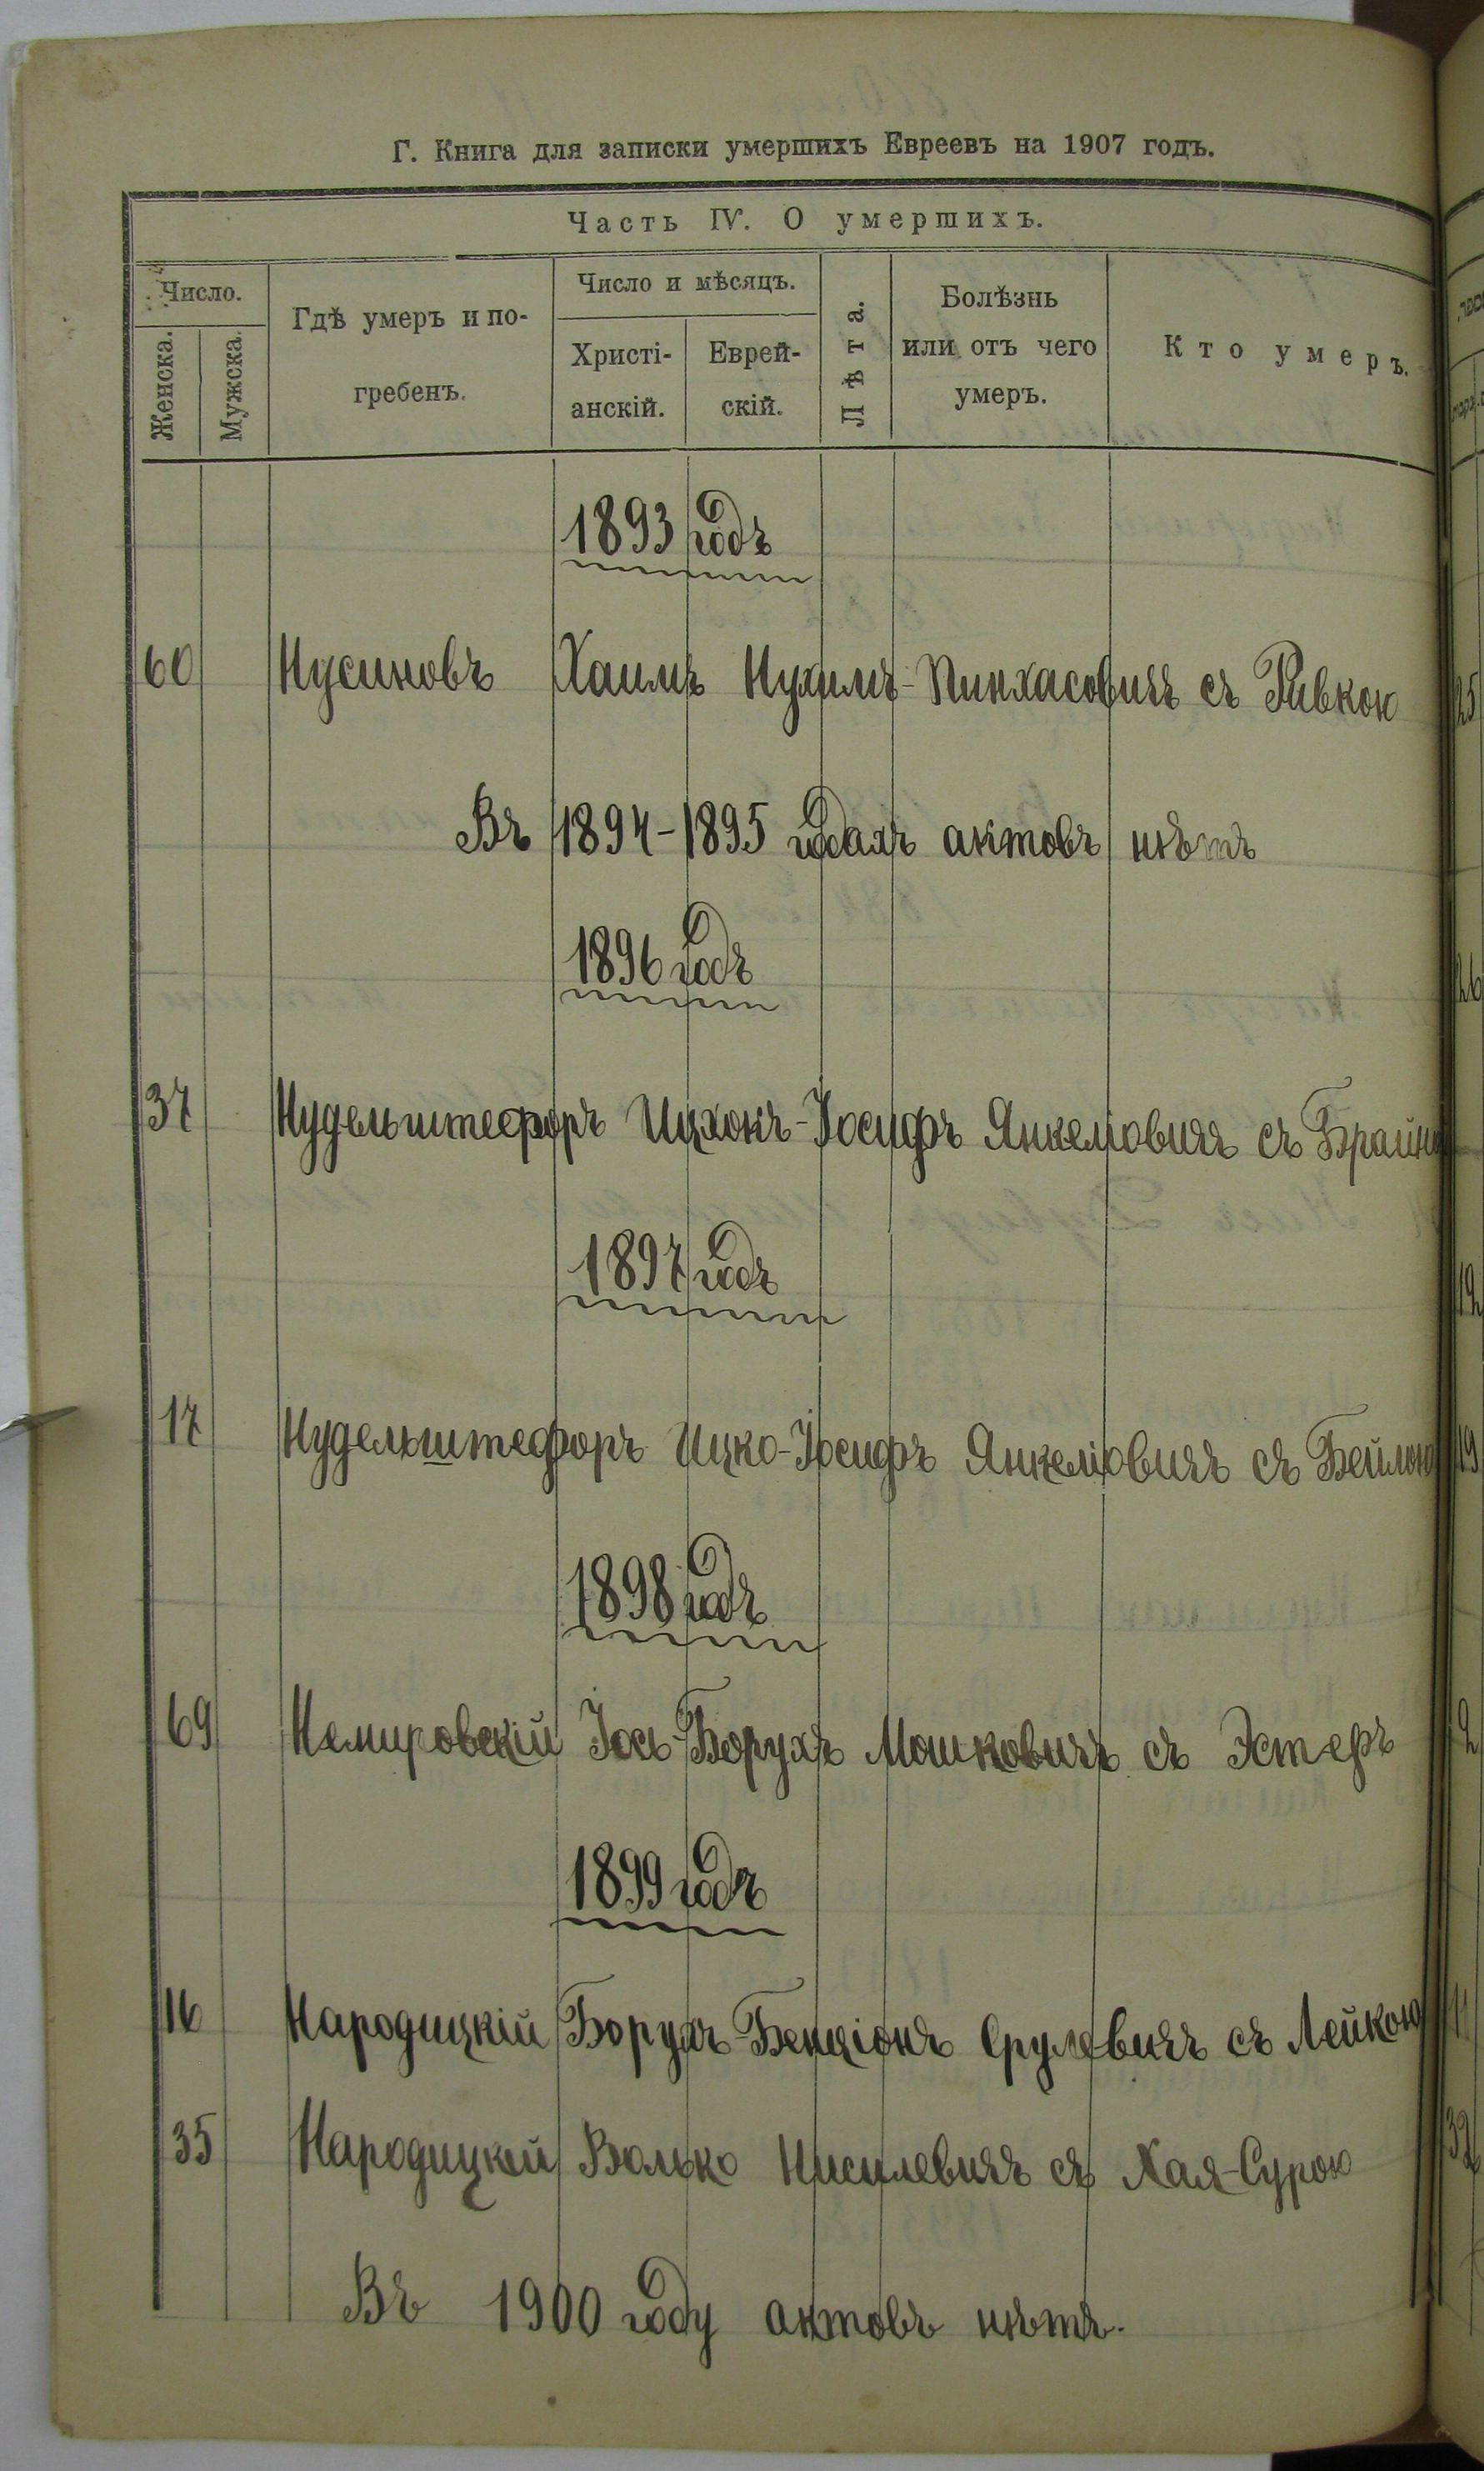 Г. Книга для записки умершихъ Евреевъ на 1907 годъ.
Часть IV. О умершихъ.
Число.
Женска.
Мужска.
Гдѣ умеръ и по-
гребенъ.
Число и мѣсяцъ.
Христі-
анскій.
Еврей-
скій.
Лѣта.
Болѣзнь
или отъ чего
умеръ.
Кто умеръ.
1893 годъ
60 Нусиновъ Хаимъ Нухимъ-Пинхасовичъ съ Ривкою
Въ 1894-1895 годахъ актовъ нѣтъ
1896 годъ
37 Нудельштефоръ Ицхокъ-Іосифъ Янкеліовичъ съ Брайно
1897 годъ
17 Нудельштефоръ Ицко-Іосифъ Янкеліовичъ съ Бейлою
1898 годъ
69 Немировскій Іось-Борухъ Мошковичъ съ Эстеръ
1899 годъ
16 Народицкій Борухъ-Бенціонъ Срулевичъ съ Лейкою
35 Народицкій Волько Нисилевичъ съ Хая-Сурою
Въ 1900 году актовъ нѣтъ.
25
26
19
32